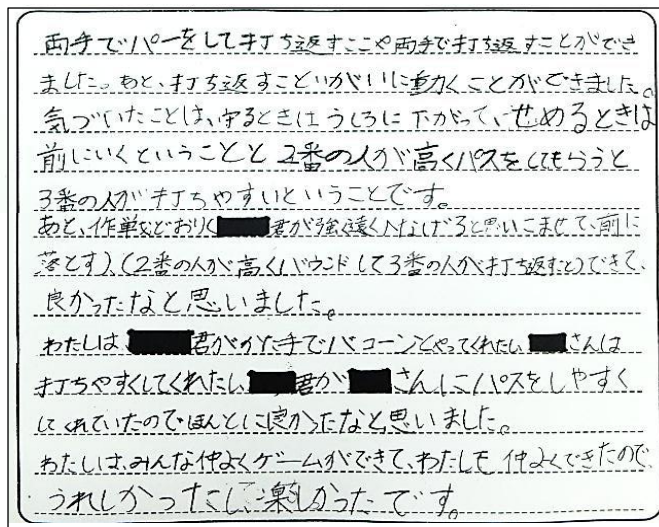 両手でパーをして打ち返すここや両手で打ち返すことができ
ました。あと、打ち返すこといがいに動くことができました。
気づいたことは、守るときはうしろに下がって、せめるときは
前にいくということと2番の人が高くパスをしてもらうと
3番の人が打ちやすいということです。
あと、作戦どおり(君が強く遠くになげると思いこませて、前に
落とす)、(2番の人が高くバウンドして3番の人が打ち返すと)できて、
良かったなと思いました。
わたしは、君がかた手でバコーンとやってくれたいさんは
打ちやすくしてくれたい君がさんにパスをしやすく
してくれていたのでほんとに良かったなと思いました。
わたしは、みんな仲よくゲームができて、わたしも仲よくできたので、
うれしかったし、楽しかったです。